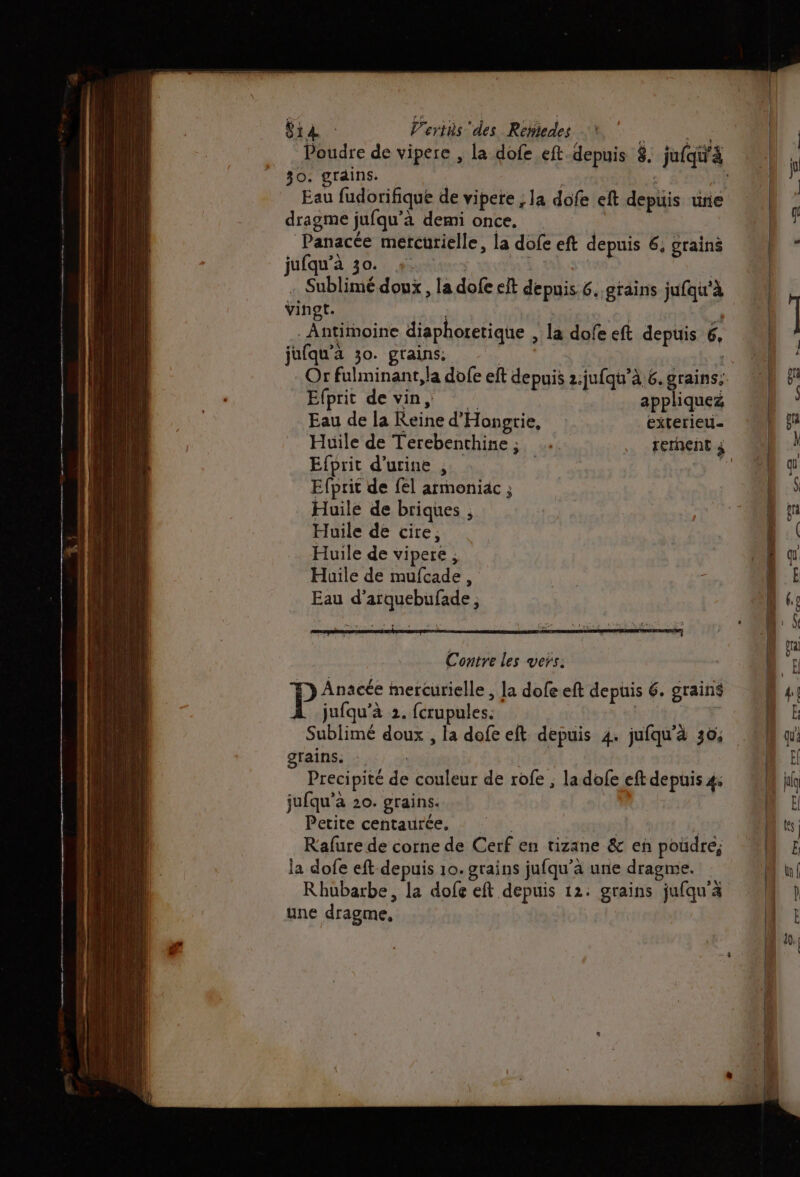 814 Vertus des Remedes
Poudre de vipere , la dose est depuis 8. jusqu'à
30. grains.
Eau sudorifique de vipere ; la dose est depuis une
dragme jusqu'à demi once.
Panacée mercurielle, la dose est depuis 6. grains
jusqu'à 30.
Sublimé doux , la dose est depuis 6. grains jusqu'à
vingt.
Antimoine diaphoretique , la dose est depuis 6.
jusqu'à 30. grains.
Or fulminant, la dose est depuis 2. jusqu'à 6. grains;
Esprit de vin, appliquez
Eau de la Reine d'Hongrie, exterieu-
Huile de Terebenthine ; rement ;
Esprit d'urine ,
Esprit de sel armoniac ;
Huile de briques ,
Huile de cire,
Huile de vipere ,
Huile de muscade ,
Eau d'arquebusade ,
Contre les vers.
PAnacée mercurielle , la dose est depuis 6. grains
jusqu'à 2. scrupules.
Sublimé doux , la dose est depuis 4. jusqu'à 30.
grains.
Precipité de couleur de rose , la dose est depuis 4.
jusqu'à 20. grains.
Petite centaurée.
Rasure de corne de Cerf en tizane & en poudre;
la dose est depuis 10. grains jusqu'à une dragme.
Rhubarbe, la dose est depuis 12. grains jusqu'à
une dragme.